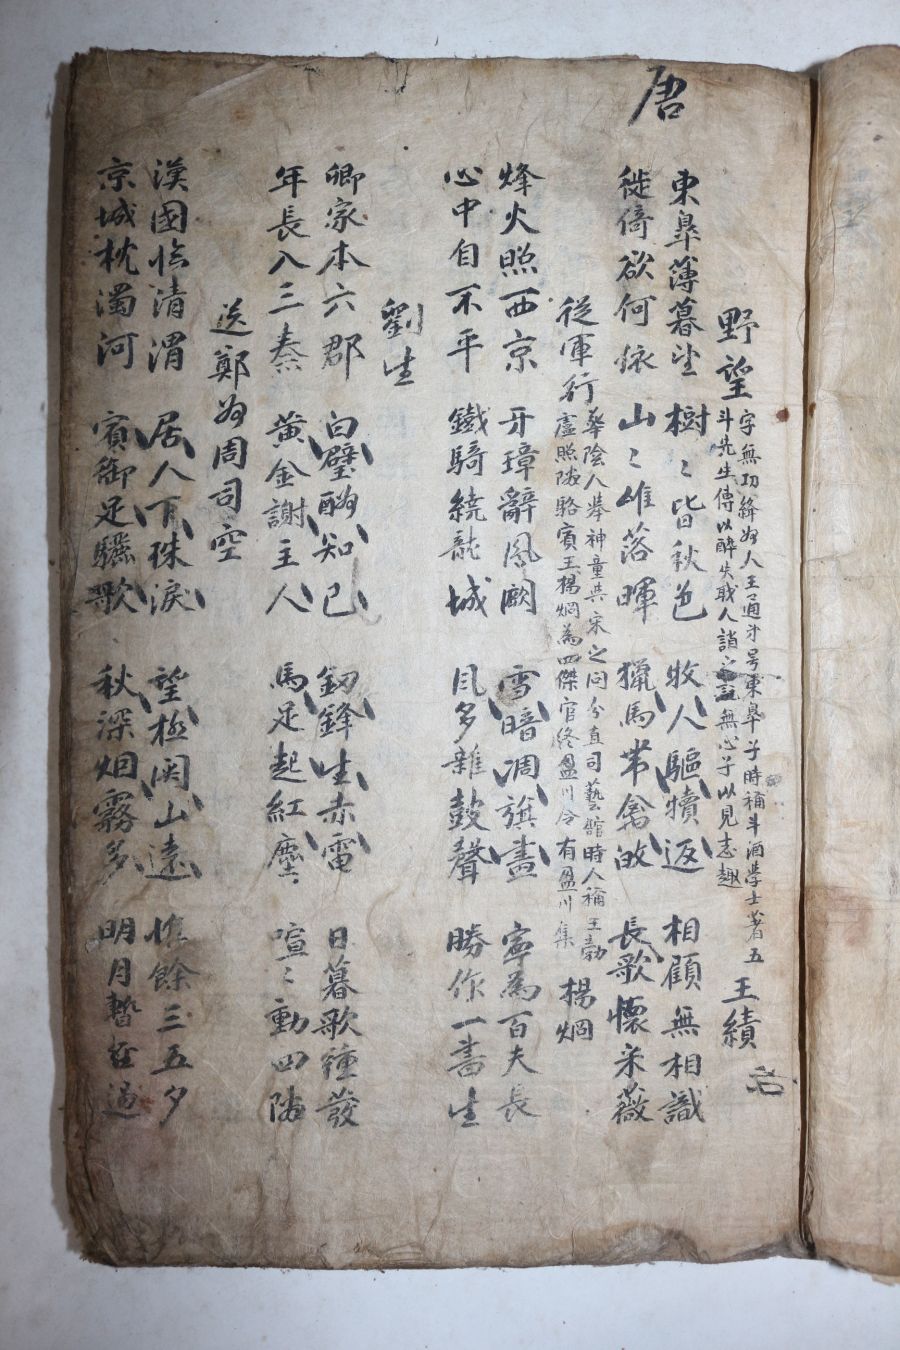 唐
野望 字無功絳州人王通弟号東皐子時稱斗酒學士著五斗先生傳以醉失職人誚之無心子以見志趣 王績
東皐薄暮望 樹〻皆秋色 牧人驅犢返 相顧無相識
徙倚欲何依 山〻唯落暉 猟馬帶禽故 長歌懷采薇
從軍行 華陰人擧神童与宋之问分直司藝館時人稱王勃盧照隣駱賓王楊烱為四傑官終盈川令有盈川集 楊烱
烽火照西京 牙璋辭鳳闕 雪暗凋旗畵 寧為百夫長
心中自不平 鐵騎繞龍城 風多雜鼓聲 勝作一書生
劉生
卿家本六郡 白璧酬知已 釼鋒生赤電 日暮歌鍾發
年長入三秦 黄金謝主人 馬足起紅塵 喧〻動四隣
送鄭州周司空
漢國臨清渭 居人下珠淚 望極関山遠 惟餘三五夕
京城枕濁河 賓御足驪歌 秋深烟霧多 明月暫経過